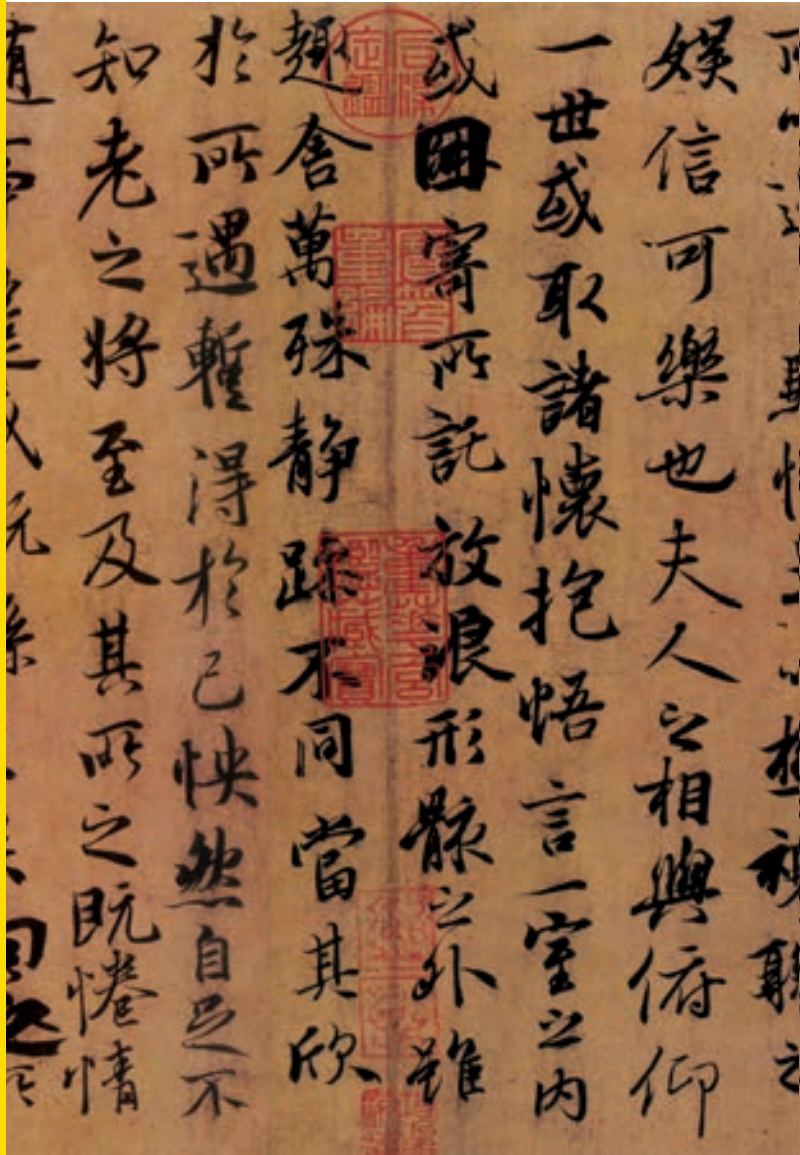 極視聽之
娛信可樂也夫人之相與俯仰
一世或取諸懷抱悟言一室之內
或因寄所託放浪形骸之外雖
趣舍萬殊靜躁不同當其欣
於所遇暫得於己怏然自足不
知老之將至及其所之既惓情